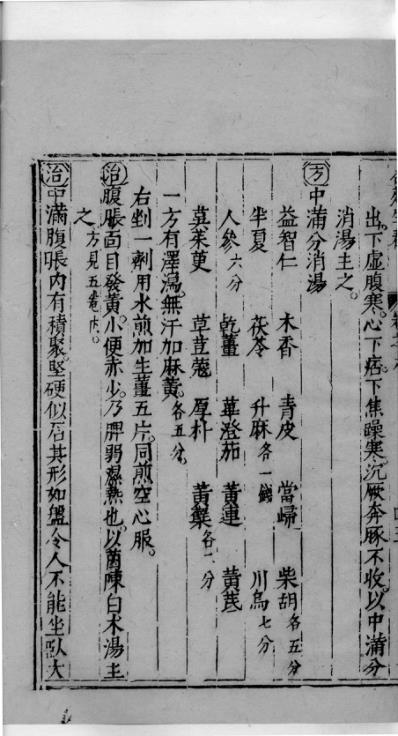 出。下虛腹寒。心下痞。下焦躁寒。沉厥奔豚不收。以中滿分
消湯主之。
方中滿分消湯
益智仁 木香 青皮 當歸 柴胡各五分
半夏 茯苓 升麻各一錢 川烏七分
人參六分 乾薑 蓽澄茄 黃連 黃芪
茱萸 草荳蔻 厚朴 黃蘗各二分
一方有澤瀉。無汗加麻黃。各五分。
右剉一劑用水煎加生薑五片。同煎空心服。
治腹脹面目發黃。小便赤少。乃脾弱濕熱也。以茵陳白术湯主
之。方見五疸
治中滿腹脹內有積聚。堅硬似石其形如盤令人不能坐臥大